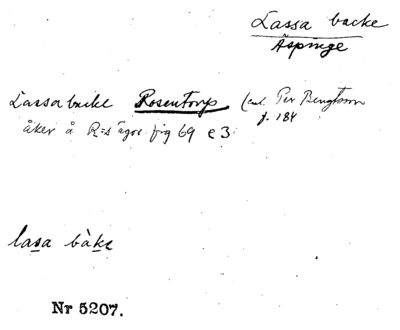 Lassa backe
Äspinge
Lassa backe Rosentorp (enl. Per Bengtsson
f. 184
åker å R=s ägor fig 69 e 3
lasa bàke
Nr 5207.